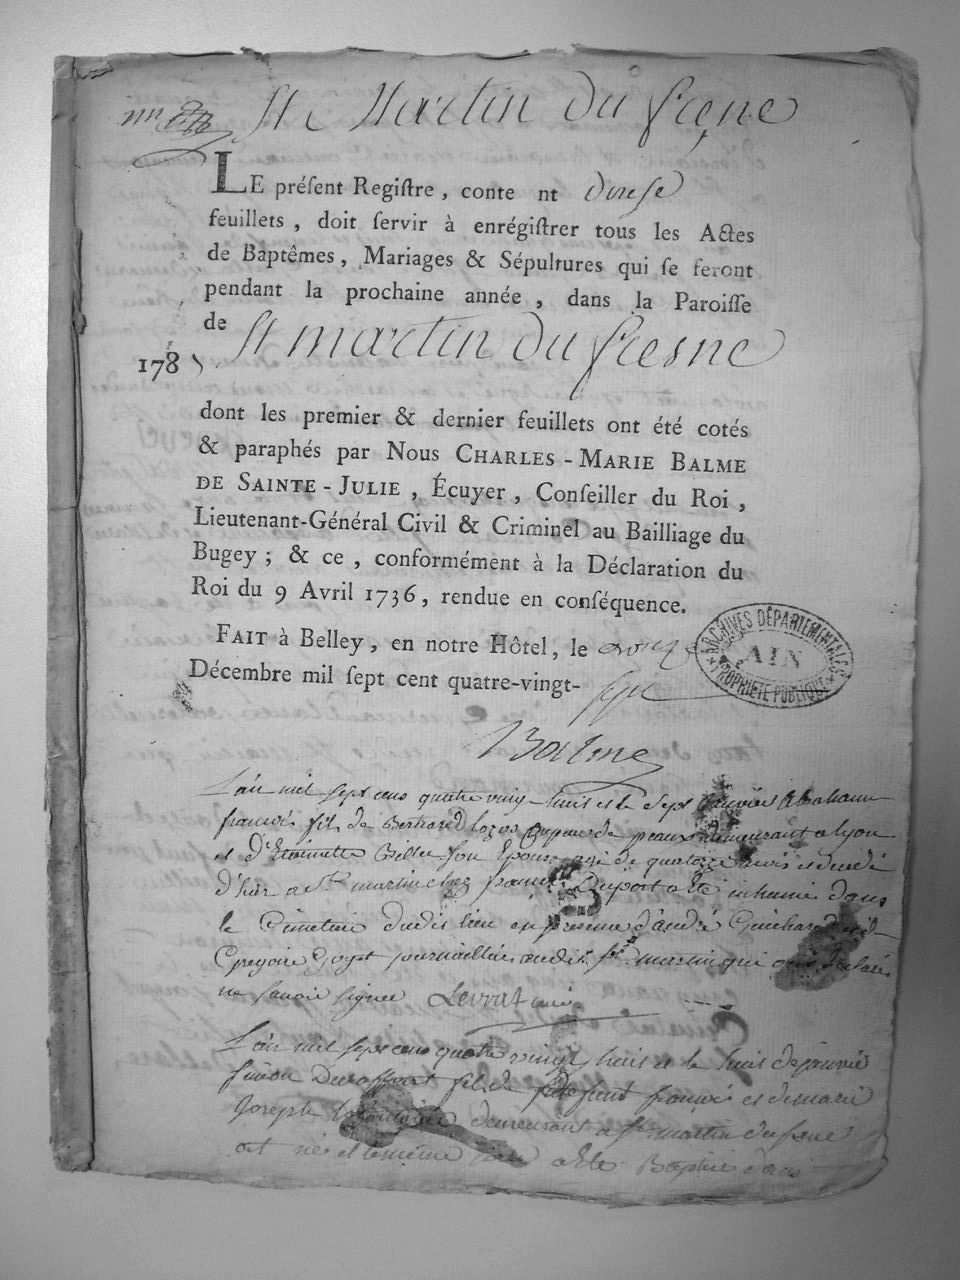 St Martin du fresne
LE préſent Regiſtre, conte nt douſe
feuillets, doit ſervir à enrégiſtrer tous les Actes
de Baptêmes, Mariages & Sépultures qui ſe feront
pendant la prochaine année, dans la Paroiſſe
de St martin du fresne
178
dont les premier & dernier feuillets ont été cotés
& paraphés par Nous CHARLES-MARIE BALME
DE SAINTE-JULIE, Écuyer, Conſeiller du Roi,
Lieutenant-Général Civil & Criminel au Bailliage du
Bugey; & ce, conformément à la Déclaration du
Roi du 9 Avril 1736, rendue en conſéquence.
FAIT à Belley, en notre Hôtel, le douze
Décembre mil ſept cent quatre-vingt-
sept
ARCHIVES DÉPARTEMENTALES
AIN
PROPRIÉTÉ PUBLIQUE
Balme
L'an mil sept cens quatre vingt huit et le sept janvier Abraham
françois fils de Bertrand de peaux demeurant a lyon
et d'Etiennette son Epouse agé de quatorze mois et decedé
d'hier a St martin chez françois Duport a eté inhumé dans
le Cimetiere dudit lieu en presence d'andré Guichard et de
Gregoire Goyet journailliers audit St martin qui ont declaré
ne savoir signer Levrat curé
L'an mil sept cens quatre vingt huit et le huit de janvier
fils de françois et de marie
Joseph demeurant a St martin du fresne
est né et le même jour a eté Baptisé dans